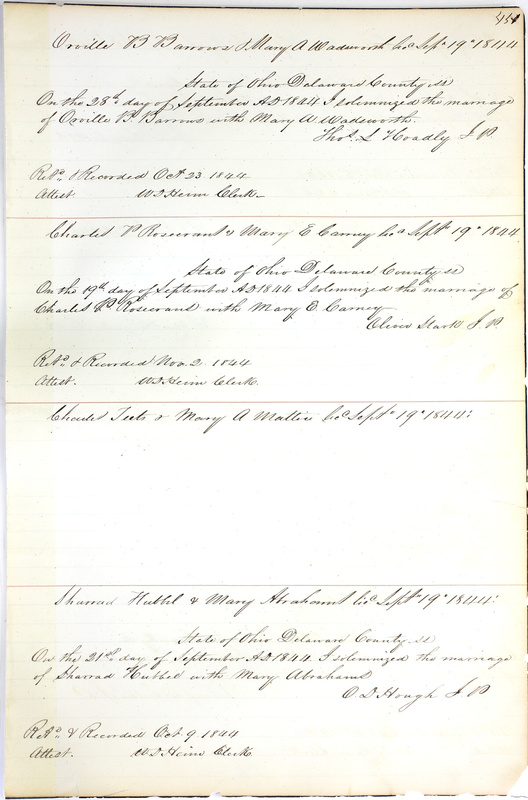 Orville B Barrows & Mary A Wadsworth licd Sept 19th 1844
State of Ohio Delaware County ss
On the 28th day of September AD 1844 I solemnized the marriage
of Orville B. Barrows with Mary A Wadsworth.
Thos. L Hoadly J P
Retd. & Recorded Oct 23 1844
Attest W D Heim Clerk
Charles P Rosecrans & Mary E Carney licd Sept 19th 1844
State of Ohio Delaware County ss
On the 19th day of September AD 1844 I solemnized the marriage of
Charles P. Rosecrans with Mary E. Carney
Oliver Stark J P
Retd. & Recorded Nov. 2 1844
Attest. W D Heim Clerk
Charles Teets & Mary A licd Sept 19th 1844:
Sharrad Hubbel & Mary Abrahams licd Sept 19th 1844:
State of Ohio Delaware County ss
On the 21st day of September AD 1844 I solemnized the marriage
of Sharrad Hubbel with Mary Abrahams
O D Hough J P
Retd. & Recorded Oct 9 1844
Attest. W D Heim Clerk